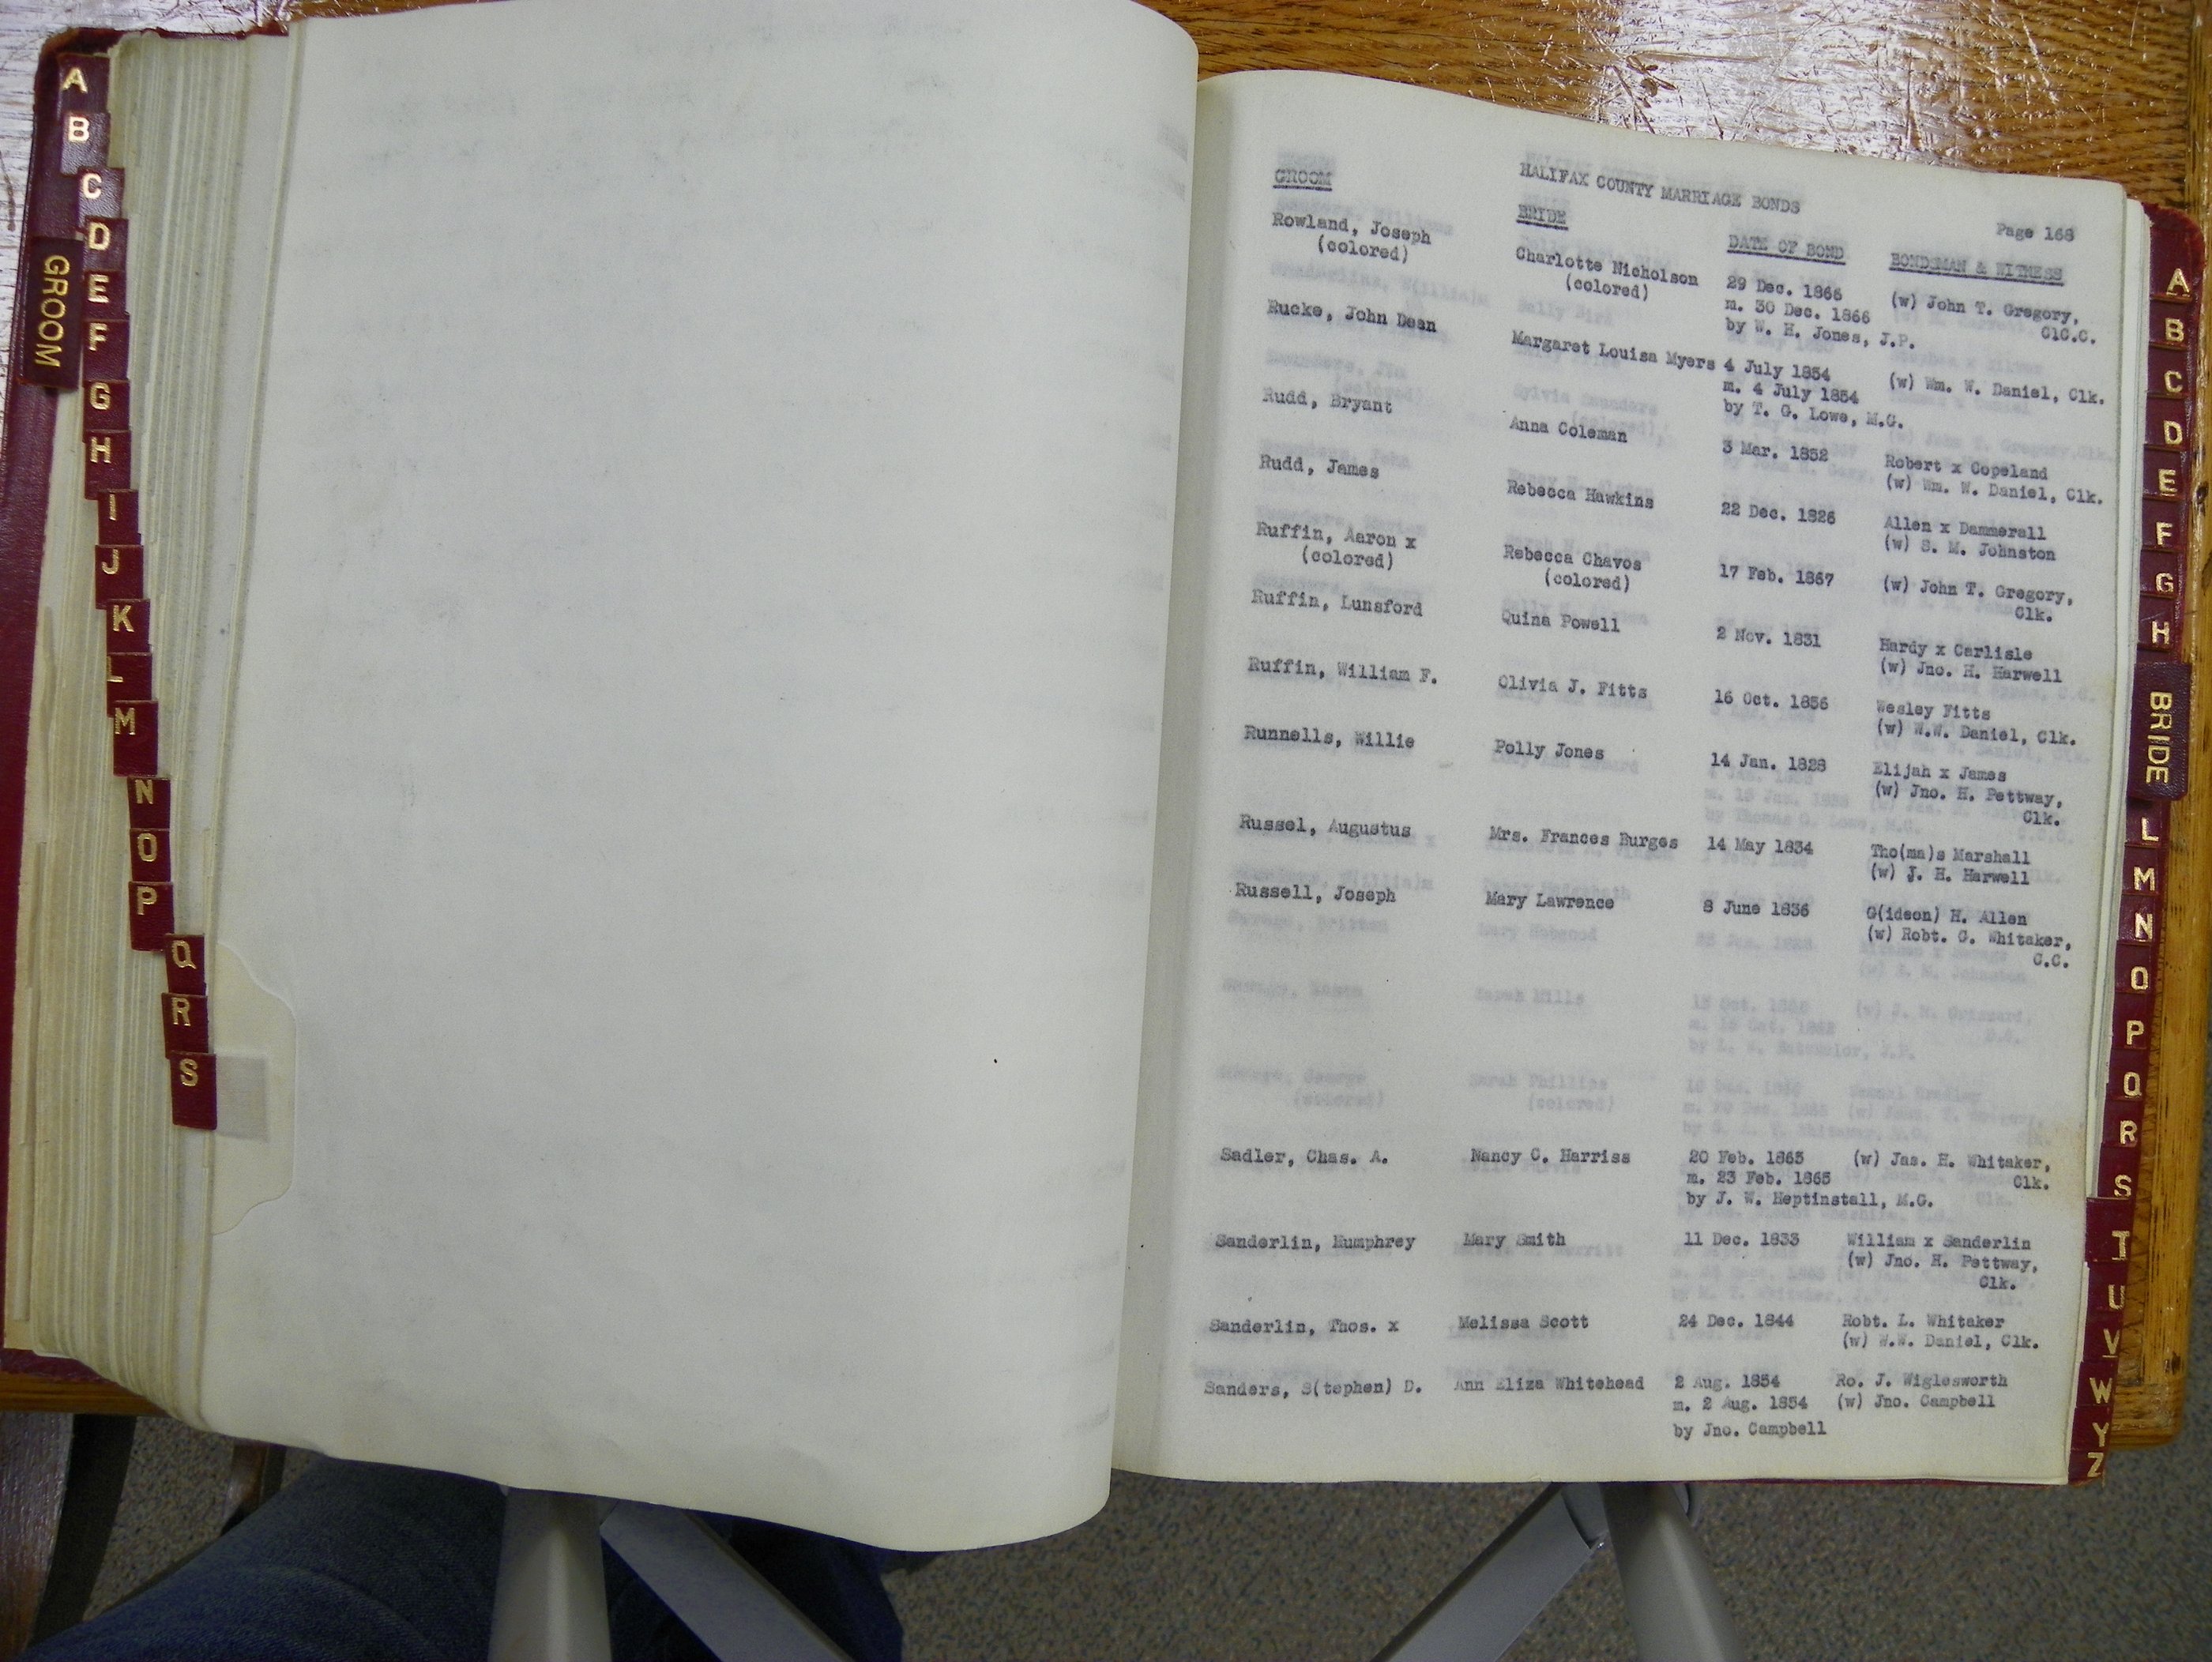 A
B
C
D
GROOM
E
F
G
H
I
J
K
L
M
N
O
P
Q
R
S
HALIFAX COUNTY MARRIAGE BONDS
Page 168
GROOM BRIDE DATE OF BOND BONDSMAN & WITNESS
Rowland, Joseph Charlotte Nicholson 29 Dec. 1866 (w) John T. Gregory,
(colored) (colored) m. 30 Dec. 1866 ClC.C.
by W. H. Jones, J.P.
Rucke, John Dean Margaret Louisa Myers 4 July 1854 (w) Wm. W. Daniel, Clk.
m. 4 July 1854
by T. G. Lowe, M.G.
Rudd, Bryant Anna Coleman 3 Mar. 1852 Robert x Copeland
(w) Wm. W. Daniel, Clk.
Rudd, James Rebecca Hawkins 22 Dec. 1826 Allen x Dammerall
(w) S. M. Johnston
Ruffin, Aaron x Rebecca Chavos 17 Feb. 1867 (w) John T. Gregory,
(colored) (colored) Clk.
Ruffin, Lunsford Quina Powell 2 Nov. 1831 Hardy x Carlisle
(w) Jno. H. Harwell
Ruffin, William F. Olivia J. Fitts 16 Oct. 1856 Wesley Fitts
(w) W.W. Daniel, Clk.
Runnells, Willie Polly Jones 14 Jan. 1828 Elijah x James
(w) Jno. H. Pettway,
Clk.
Russel, Augustus Mrs. Frances Burges 14 May 1834 Tho(ma)s Marshall
(w) J. H. Harwell
Russell, Joseph Mary Lawrence 8 June 1836 G(ideon) H. Allen
(w) Robt. G. Whitaker,
C.C.
Sadler, Chas. A. Nancy C. Harriss 20 Feb. 1865 (w) Jas. H. Whitaker,
m. 23 Feb. 1865 Clk.
by J. W. Heptinstall, M.G.
Sanderlin, Humphrey Mary Smith 11 Dec. 1833 William x Sanderlin
(w) Jno. H. Pettway,
Clk.
Sanderlin, Thos. x Melissa Scott 24 Dec. 1844 Robt. L. Whitaker
(w) W.W. Daniel, Clk.
Sanders, S(tephen) D. Ann Eliza Whitehead 2 Aug. 1854 Ro. J. Wiglesworth
m. 2 Aug. 1854 (w) Jno. Campbell
by Jno. Campbell
A
B
C
D
E
F
G
H
BRIDE
L
M
N
O
P
Q
R
S
T
U
V
W
Y
Z